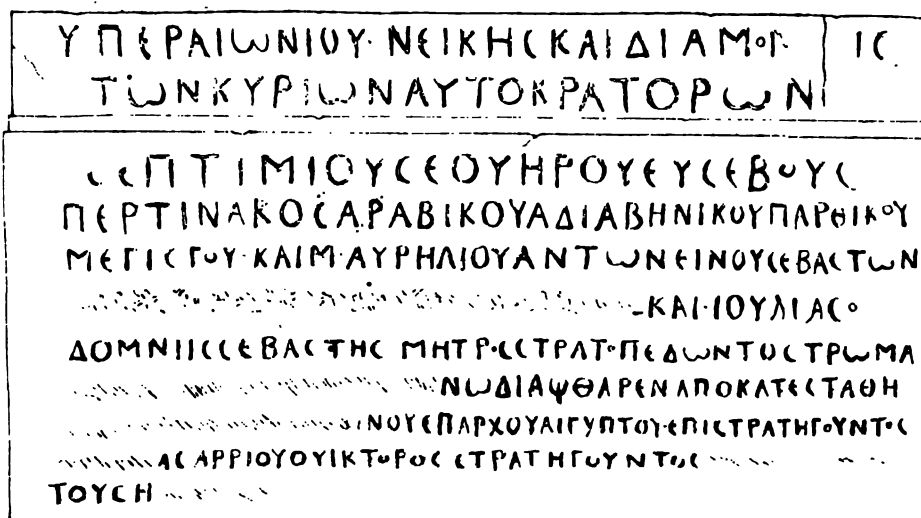 ΥΠΕΡΑΙωΝΙΟΥ·ΝΕΙΚΗϹΚΑΙΔΙΑΜΟΓ ΙϹ
ΤωΝΚΥΡΙωΝΑΥΤΟΚΡΑΤΟΡωΝ
ϹЄΠΤΙΜΙΟΥϹЄΟΥΗΡΟΥЄΥϹЄΒΟΥϹ
ΠЄΡΤΙΝΑΚΟϹΑΡΑΒΙΚΟΥΑΔΙΑΒΗΝΙΚΟΥΠΑΡΘΙΚΟΥ
ΜЄΓΙϹΤΟΥ·ΚΑΙΜ·ΑΥΡΗΛΙΟΥΑΝΤωΝЄΙΝΟΥϹЄΒΑϹΤωΝ
ΚΑΙ·ΙΟΥΛΙΑϹ
ΔΟΜΝΙΙϹϹЄΒΑϹΤΗϹ ΜΗΤΡ·ϹϹΤΡΑΤΟΠЄΔωΝΤΟϹΤΡωΜΑ
ΝωΔΙΑΨΘΑΡЄΝΑΠΟΚΑΤЄϹΤΑΘΗ
ΙΝΟΥЄΠΑΡΧΟΥΑΙΓΥΠΤΟΥ·ЄΠΙϹΤΡΑΤΗΓΟΥΝΤΟϹ
ΑϹ ΑΡΡΙΟΥΟΥΙΚΤΟΡΟϹ ϹΤΡΑΤΗΓΟΥΝΤΟϹ
ΤΟΥϹΗ